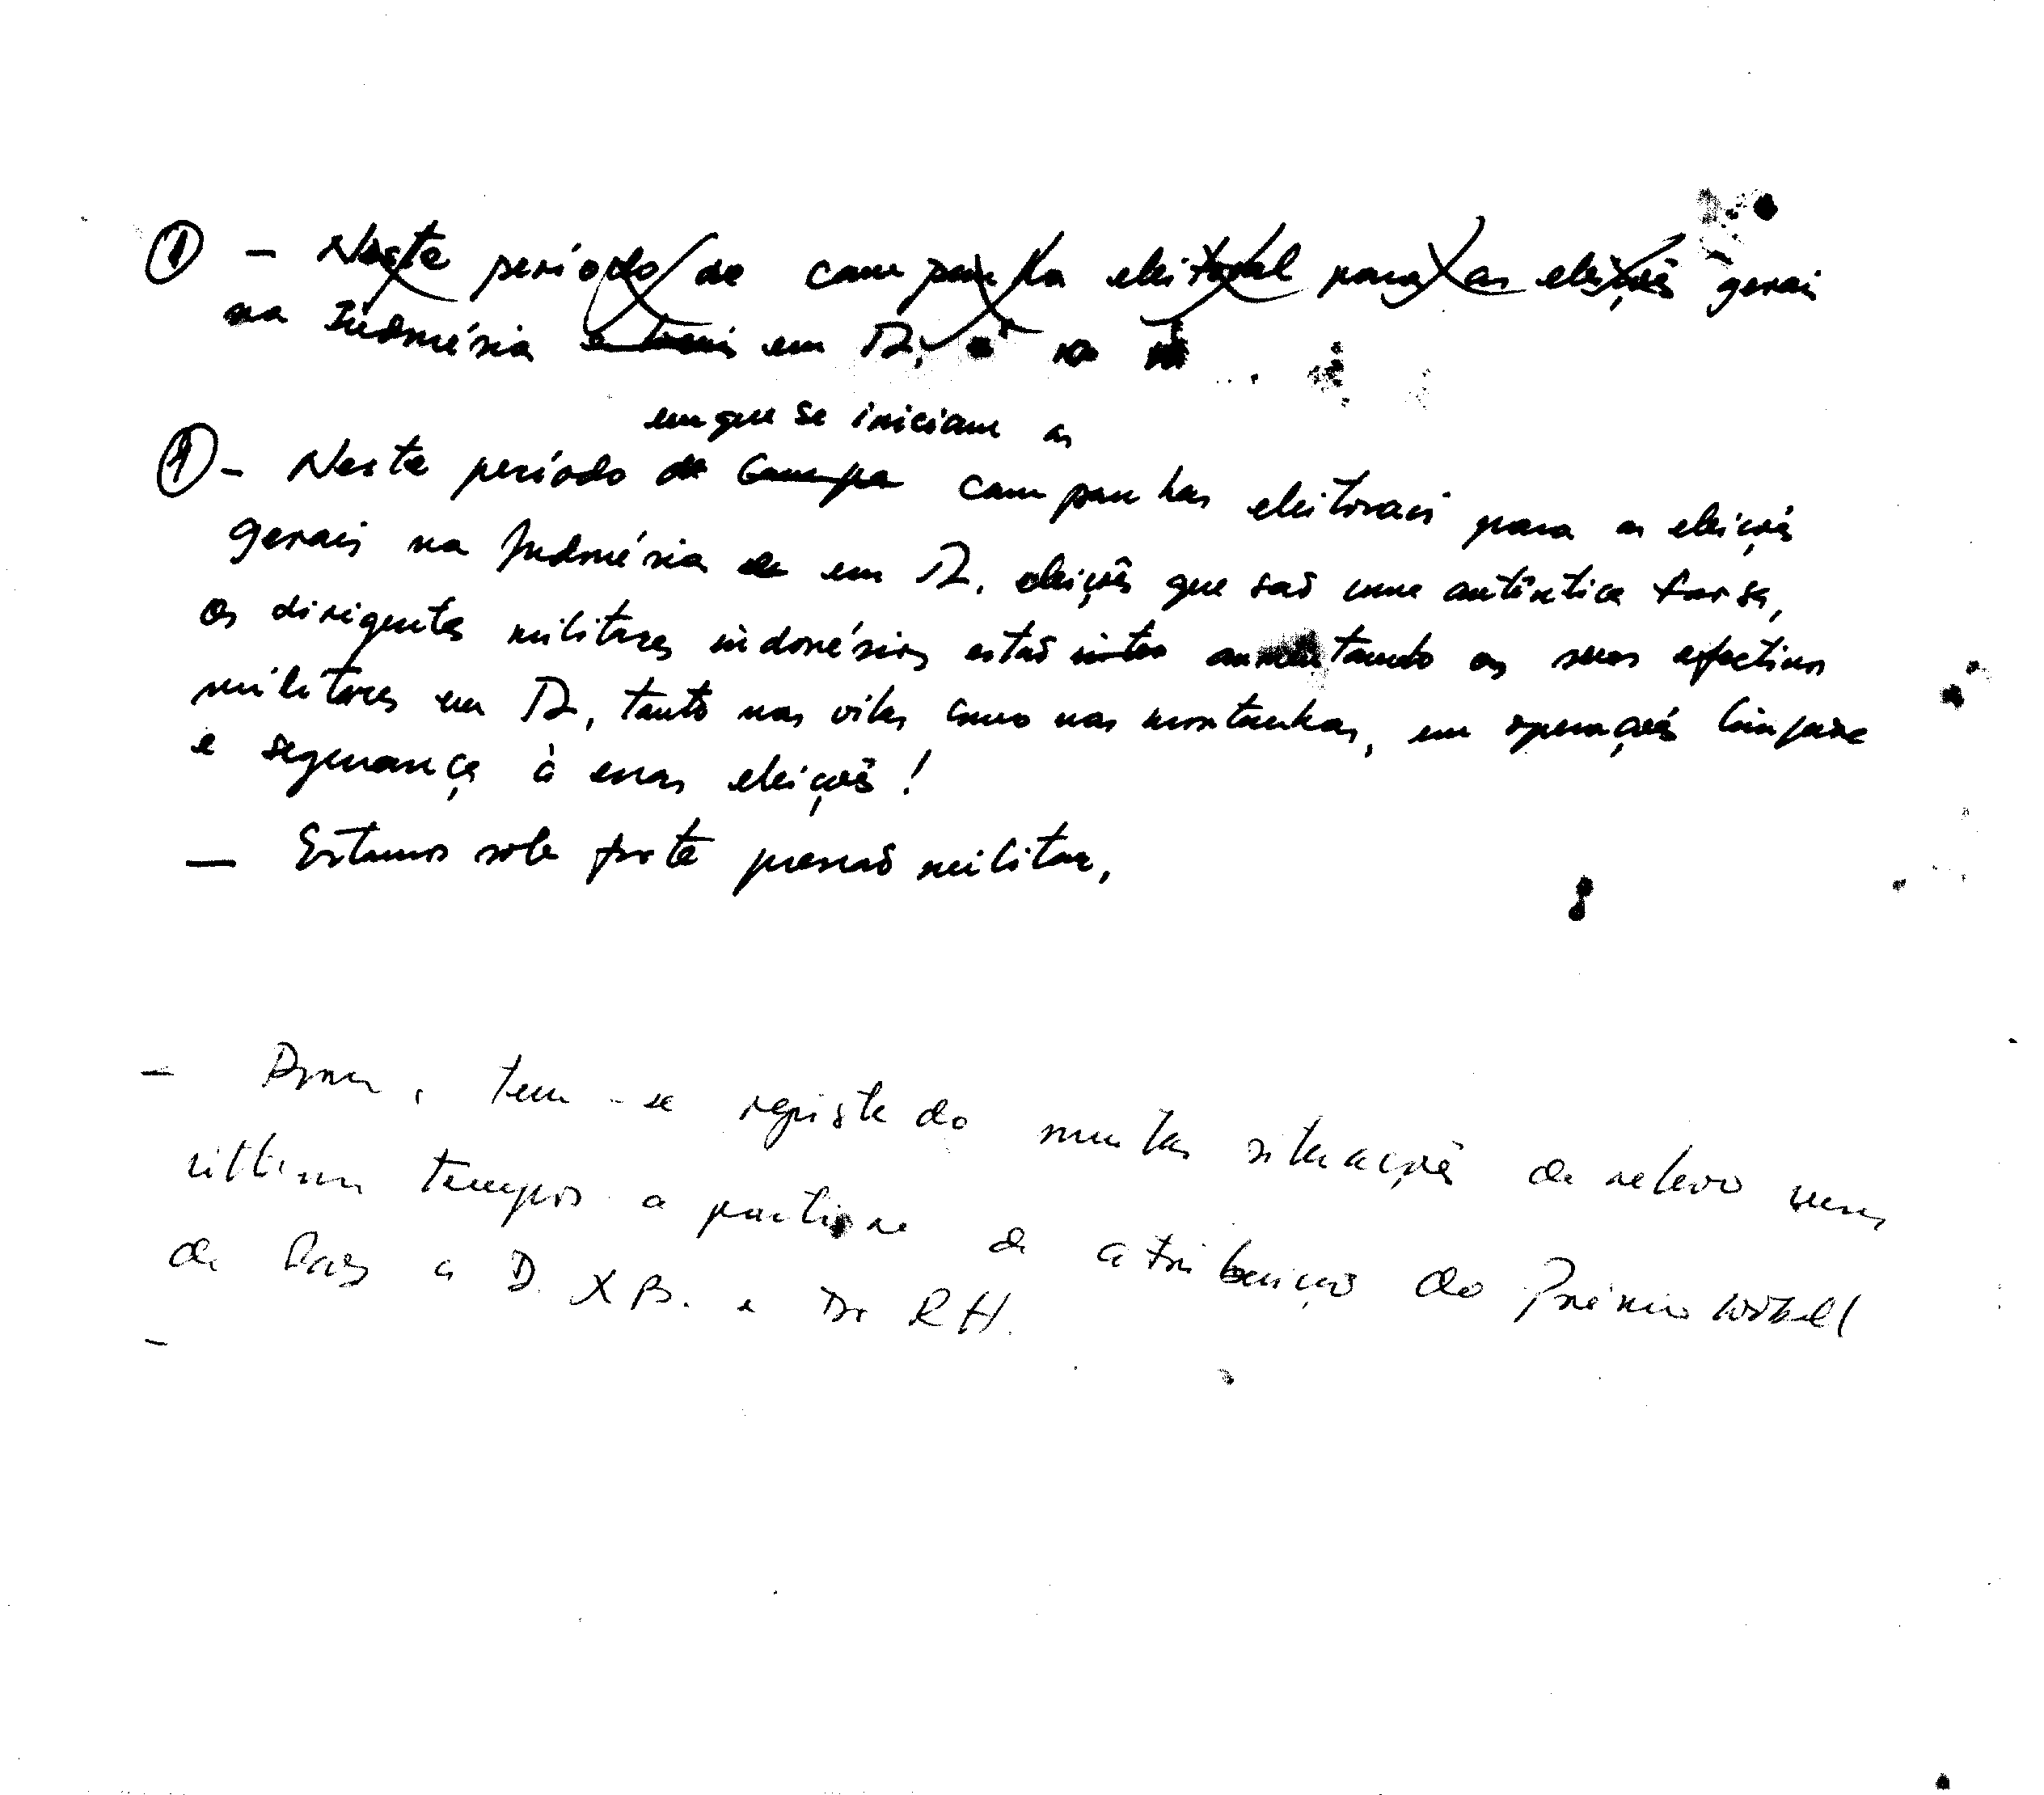 ① – Neste período de campanha eleitoral para as eleições gerais
na Indonésia em TL, no
em que se iniciam as
① – Neste período de Campa campanhas eleitorais para as eleições
gerais na Indonésia e em TL, eleições que são uma autêntica farsa,
os dirigentes militares indonésios estão aumentando os seus efectivos
militares em TL, tanto nas vilas como nas montanhas, em operações limpeza
e segurança à essas eleições!
— Estamos sob forte pressão militar,
– tem-se registado muitas situações de relevo nesses
últimos tempos a partir de atribuição do Prémio Nobel
de Paz a D. X B. e Dr R H.
–